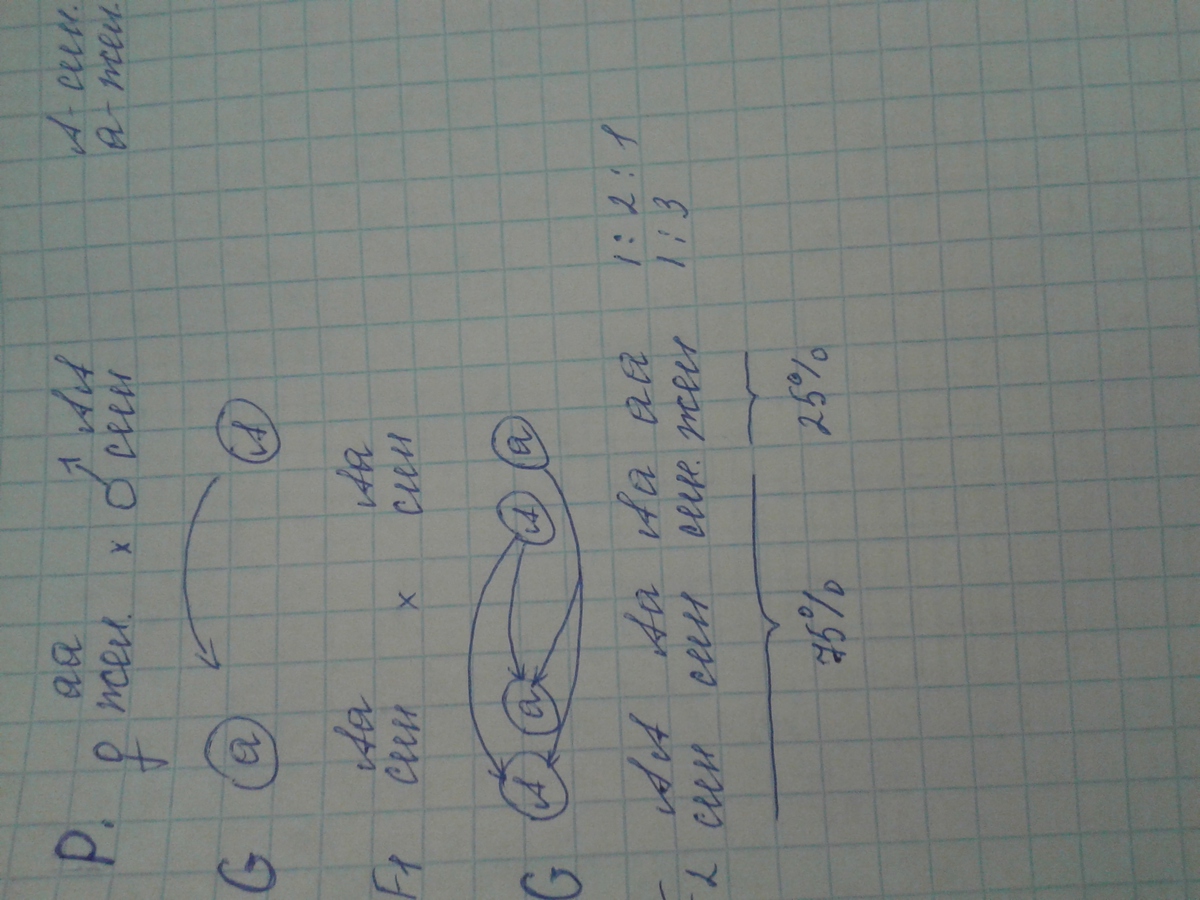 A - син.
a - жел.
P. aa AA
♀ жел. x ♂ син
G a A
Aa Aa
F1 син x син
G A a A a
AA Aa Aa aa 1:2:1
F2 син син син. жел 1:3
75% 25%